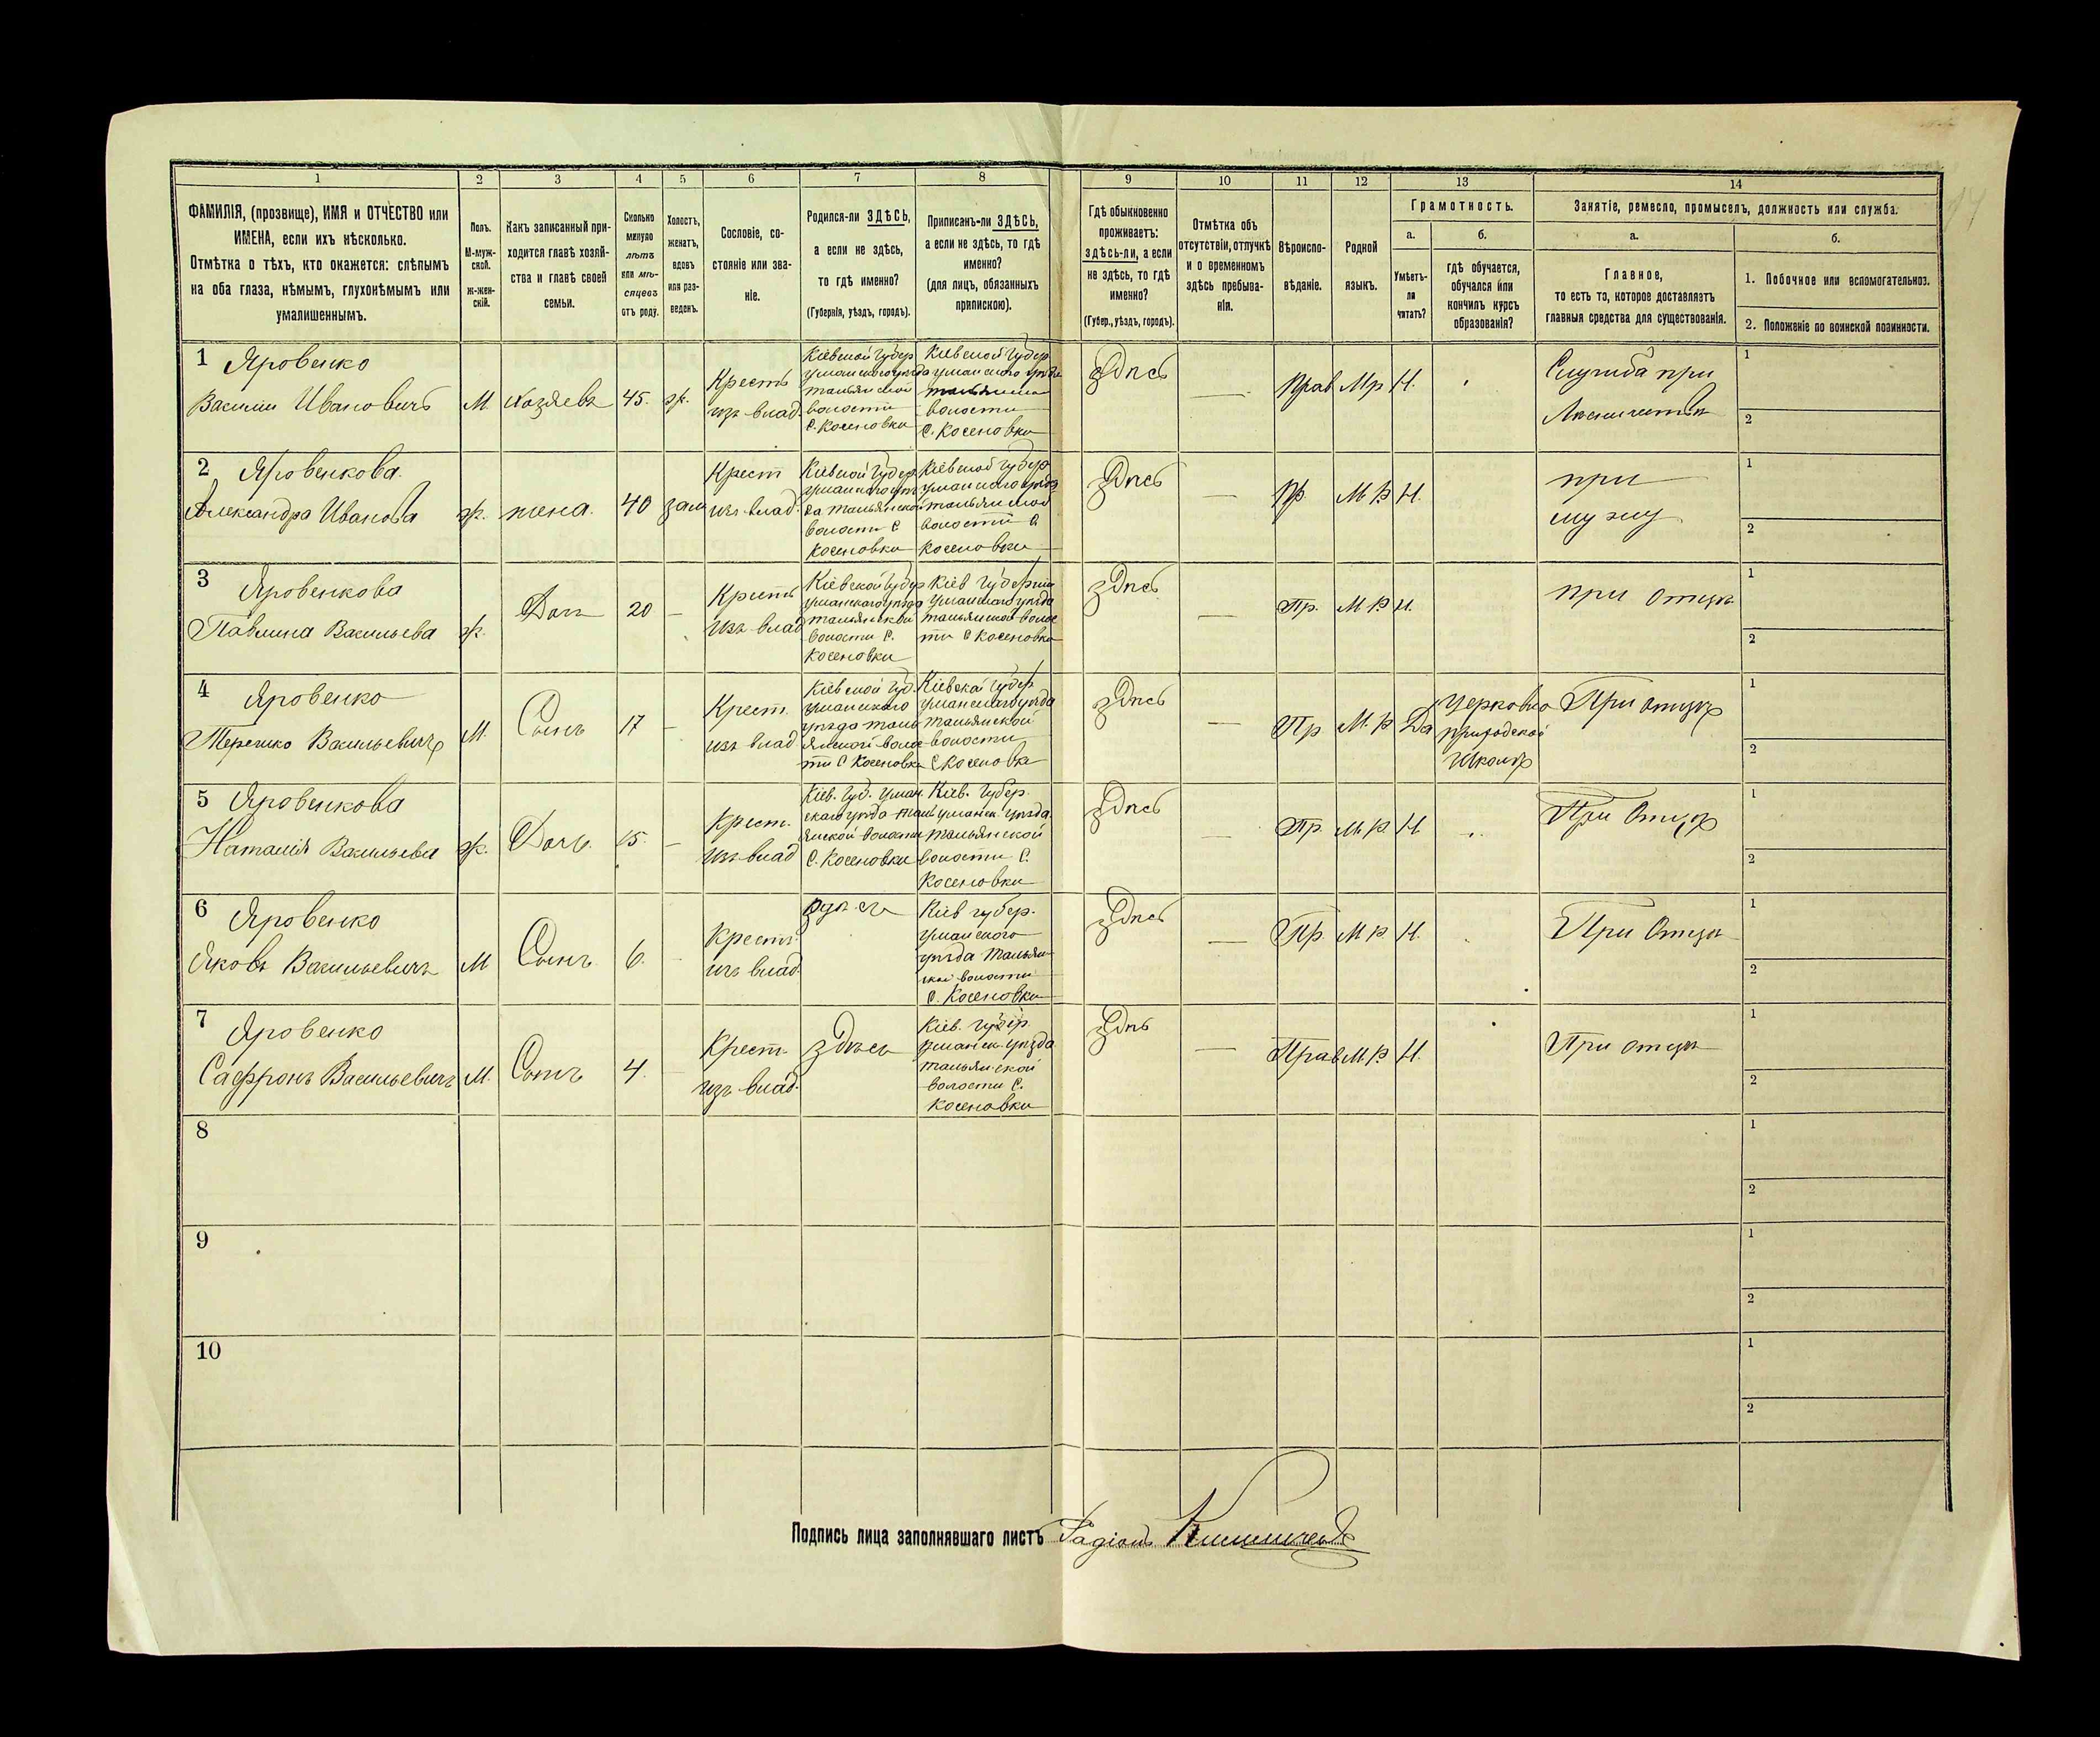 1 2 3 4 5 6 7 8 9 10 11 12 13 14
ФАМИЛІЯ, (прозвище), ИМЯ и ОТЧЕСТВО или
ИМЕНА, если ихъ нѣсколько.
Отмѣтка о тѣхъ, кто окажется: слѣпымъ
на оба глаза, нѣмымъ, глухонѣмымъ или
умалишеннымъ.
Полъ.
М-муж-
ской.
ж-жен-
скій.
Какъ записанный при-
ходится главѣ хозяй-
ства и главѣ своей
семьи.
Сколько
минуло
лѣтъ
или мѣ-
сяцевъ
отъ роду.
Холостъ,
женатъ,
вдовъ
или раз-
веденъ.
Сословіе, со-
стояніе или зва-
ніе.
Родился-ли ЗДѢСЬ,
а если не здѣсь,
то гдѣ именно?
(Губернія, уѣздъ, городъ).
Приписанъ-ли ЗДѢСЬ,
а если не здѣсь, то гдѣ
именно?
(для лицъ, обязанныхъ
припискою).
Гдѣ обыкновенно
проживаетъ:
здѣсь-ли, а если
не здѣсь, то гдѣ
именно?
(Губер., уѣздъ, городъ).
Отмѣтка объ
отсутствіи, отлучкѣ
и о временномъ
здѣсь пребыва-
ніи.
Вѣроиспо-
вѣданіе.
Родной
языкъ.
Грамотность.
а.
Умѣетъ-
ли
читать?
б.
гдѣ обучается,
обучался или
кончилъ курсъ
образованія?
Занятіе, ремесло, промыселъ, должность или служба.
а.
Главное,
то есть то, которое доставляетъ
главныя средства для существованія.
б.
1. Побочное или вспомогательное.
2. Положеніе по воинской повинности.
1 Яровенко
Василии Ивановичъ
М.
Хозяевъ
45.
ж.
Крестъ
изъ влад.
Кіевской Губер
уманского уезда
тальянской
волости
С. Косеновки
Кіевской Губер
уманского уезда
тальянской
волости
С. Косеновки
здпсь
—
Прав
Мр
Н.
Служба при
1
2
2 Яровенкова
Александра Иванова
ж.
жена.
40
зам
Крест
изъ влад.
Кіевской Губер.
волости С
Косеновки
Кіевской Губер
волости С
Косеновки
здпсь
—
Пр
М р
Н.
при
мужу
1
2
3 Яровенкова
Павлина Васильева
ж.
Доч
20
—
Крестъ
изъ влад
Кіевской Губер
уманского упзда
тальянской
волости С.
Косеновки
Кіев Губерніи
уманского упзда
тальянской волос
ти С Косеновки
здпсь
—
Пр.
М р
Н.
при отцп
1
2
4 Яровенко
Терешко Васильевичъ
М.
Сынъ
17
—
Крест.
изъ влад
Кіевской Губ.
уманского
упзда таль
янской волос
ти С Косеновки
Кіевской Губер
уманского упзда
тальянской
волости
С Косеновки
здпсь
—
Пр
М. р
Да
церковно
приходской
школп
При отцп
1
2
5 Яровенкова
Наталія Васильева
ж.
Дочь.
15.
—
Крест.
изъ влад
Кіев. Губ. уман
скаго упзда таль
янской волости
С. Косеновки
Кіев. Губер.
уманск. упзда
тальянской
волости С.
Косеновки
здпсь
—
Пр.
М. р
Н.
При Отцп
1
2
6 Яровенко
Яковъ Васильевичъ
М
Сынъ
6.
Крестъ.
изъ влад.
Кіев губер.
уманского
упзда тальян
ской волости
С. Косеновки
здпсь
—
Пр.
М р
Н.
При Отцп
1
2
7 Яровенко
Сафронъ Васильевичъ
М.
Сынъ
4.
Крест.
изъ влад.
здпсь
Кіев. губер
уманск упзда
тальянской
волости С.
Косеновки
здпь
—
Прав
М р
Н.
При отцп
1
2
8
1
2
9
1
2
10
1
2
Подпись лица заполнявшаго листъ Радіонъ